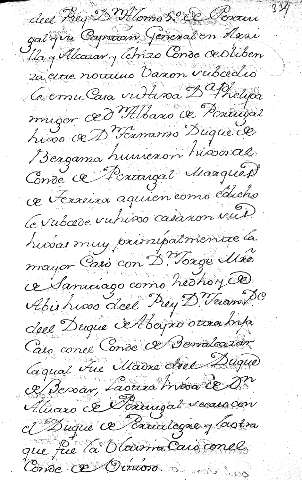 339
del Rey Dn Alonso 5º de Portu
gal que Capitan General en Arci
lla y Alcazar, y le hizo Conde de Oliben
za este no tuvo Varon subcedio
le en su Casa su hixa Da Phelipa
muger de Dn Albaro de Portugal
hixo de Dn Fernando Duque de
Berganza huvieron hixos al
Conde de Portugal Marques
de Ferreira a quien como é dicho
le subcede su hixo casaron sus
hixas muy principalmente la
mayor Casó con Dn Jorge Mre
de Santiago como he dho y de
Abis hixo del Rey Dn Juan 2º
del Duque de Abeyro otra hixa
Caso con el Conde de Benalcazar
la qual fue Madre del Duque
de Bexar, la otra hixa de Dn
Alvaro de Portugal se caso con
el Duque de Portalegre y la otra
que fue la Ultima Caso con el
Conde de Vimioso